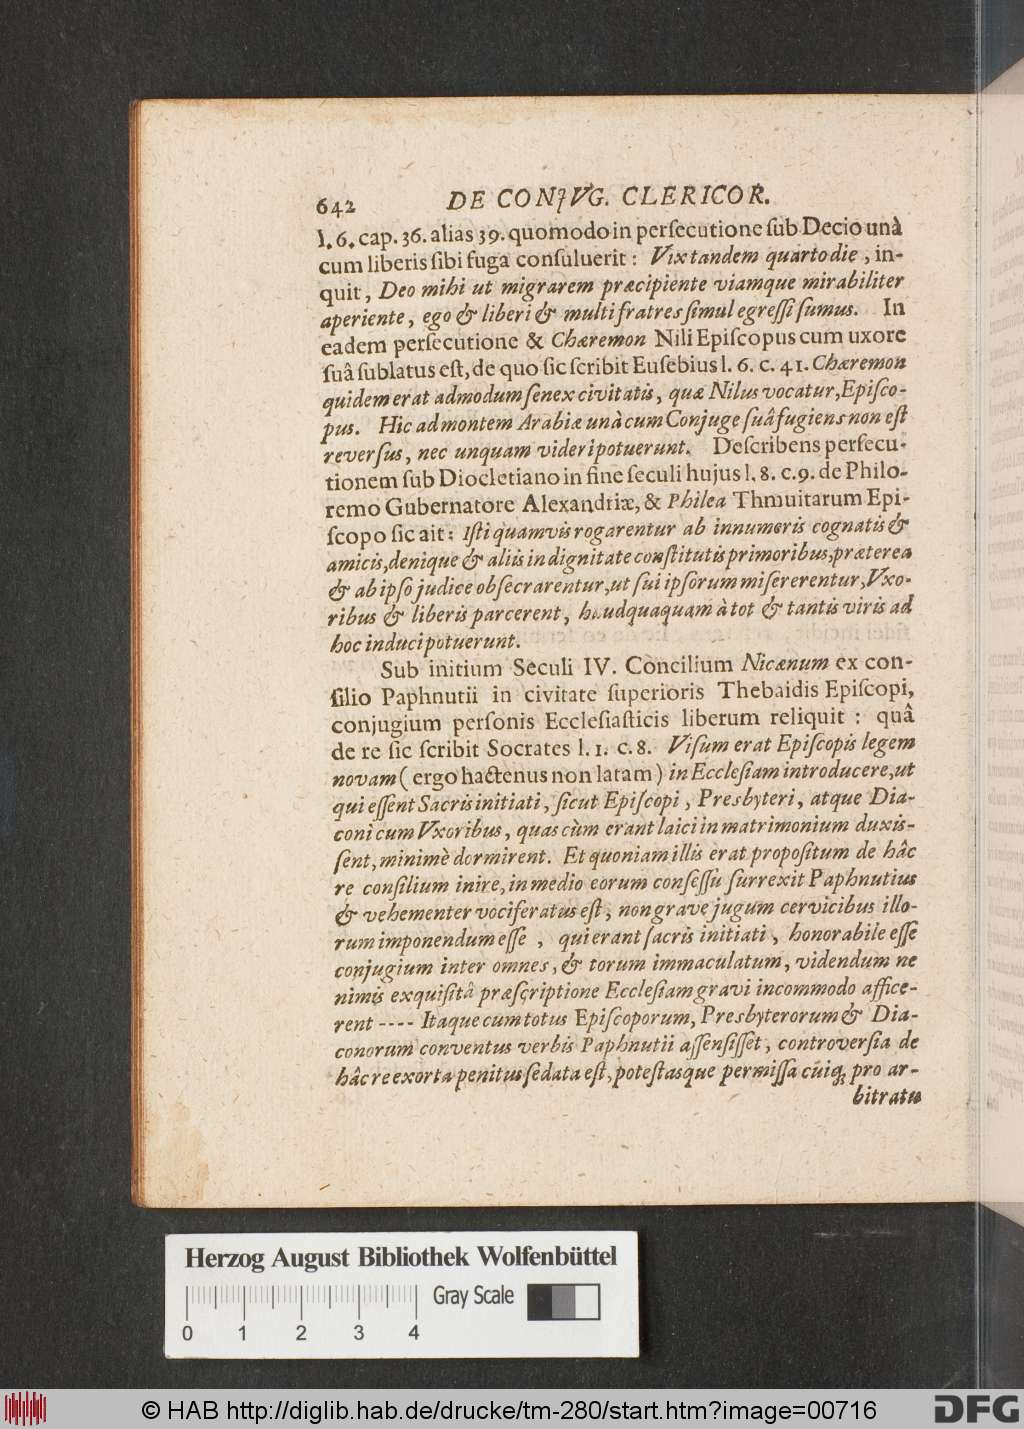 642 DE CONJVG. CLERICOR.
l. 6. cap. 36. alias 39. quomodo in perſecutione ſub Decio unà
cum liberis ſibi fuga conſuluerit: Vix tandem quarto die, in-
quit, Deo mihi ut migrarem præcipiente viamque mirabiliter
aperiente, ego & liberi & multi fratres ſimul egreſſi ſumus. In
eadem perſecutione & Chæremon Nili Epiſcopus cum uxore
ſuâ ſublatus eſt, de quo ſic ſcribit Euſebius l. 6. c. 41. Chæremon
quidem erat admodum ſenex civitatis, quæ Nilus vocatur, Epiſco-
pus. Hic ad montem Arabiæ unà cum Conjuge ſuâ fugiens non eſt
reverſus, nec unquam videri potuerunt. Deſcribens perſecu-
tionem ſub Diocletiano in fine ſeculi hujus l. 8. c. 9. de Philo-
remo Gubernatore Alexandriæ, & Philea Thmuitarum Epi-
ſcopo ſic ait: Iſti quamvis rogarentur ab innumeris cognatis &
amicis, denique & aliis in dignitate conſtitutis primoribus, præterea
& ab ipſo judice obſecrarentur, ut ſui ipſorum miſererentur, Vxo-
ribus & liberis parcerent, haudquaquam à tot & tantis viris ad
hoc induci potuerunt.
Sub initium Seculi IV. Concilium Nicænum ex con-
ſilio Paphnutii in civitate ſuperioris Thebaidis Epiſcopi,
conjugium perſonis Eccleſiaſticis liberum reliquit : quâ
de re ſic ſcribit Socrates l. 1. c. 8. Viſum erat Epiſcopis legem
novam ( ergo hactenus non latam ) in Eccleſiam introducere, ut
qui eſſent Sacris initiati, ſicut Epiſcopi, Presbyteri, atque Dia-
coni cum Vxoribus, quas cùm erant laici in matrimonium duxiſ-
ſent, minimè dormirent. Et quoniam illis erat propoſitum de hâc
re conſilium inire, in medio eorum conſeſſu ſurrexit Paphnutius
& vehementer vociferatus eſt, non grave jugum cervicibus illo-
rum imponendum eſſe , qui erant ſacris initiati, honorabile eſſe
conjugium inter omnes, & torum immaculatum, videndum ne
nimis exquiſitâ præſcriptione Eccleſiam gravi incommodo affice-
rent ---- Itaque cum totus Epiſcoporum, Presbyterorum & Dia-
conorum conventus verbis Paphnutii aſſenſiſſet, controverſia de
hâc re exorta penitus ſedata eſt, poteſtasque permiſſa cuiq; pro ar-
bitratu
Herzog August Bibliothek Wolfenbüttel
Gray Scale
0 1 2 3 4
© HAB http://diglib.hab.de/drucke/tm-280/start.htm?image=00716
DFG